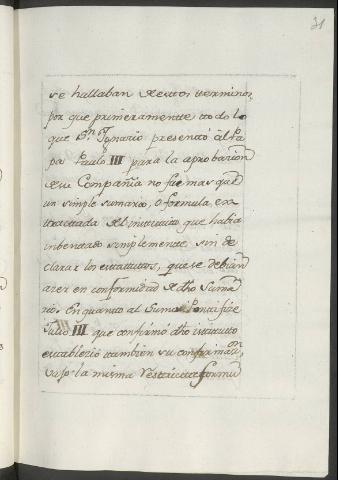 31
se hallaban dentro terminos,
por que primeramente todo lo
que Sn. Ygnacio presentó al Pa
pa Paulo III para la aprobacion
de su Compañia no fue mas que
un simple sumario, o formula, ex
tractada del instituto que habia
inbentado simplemente sin de
clarar los estatutos, que se debian
acer en conformidad de dho Suma
rio. En quanto al Sumo Pontifize
Julio III que confirmó dho istituto
establezio tambien su confirmaon.
vajo la misma